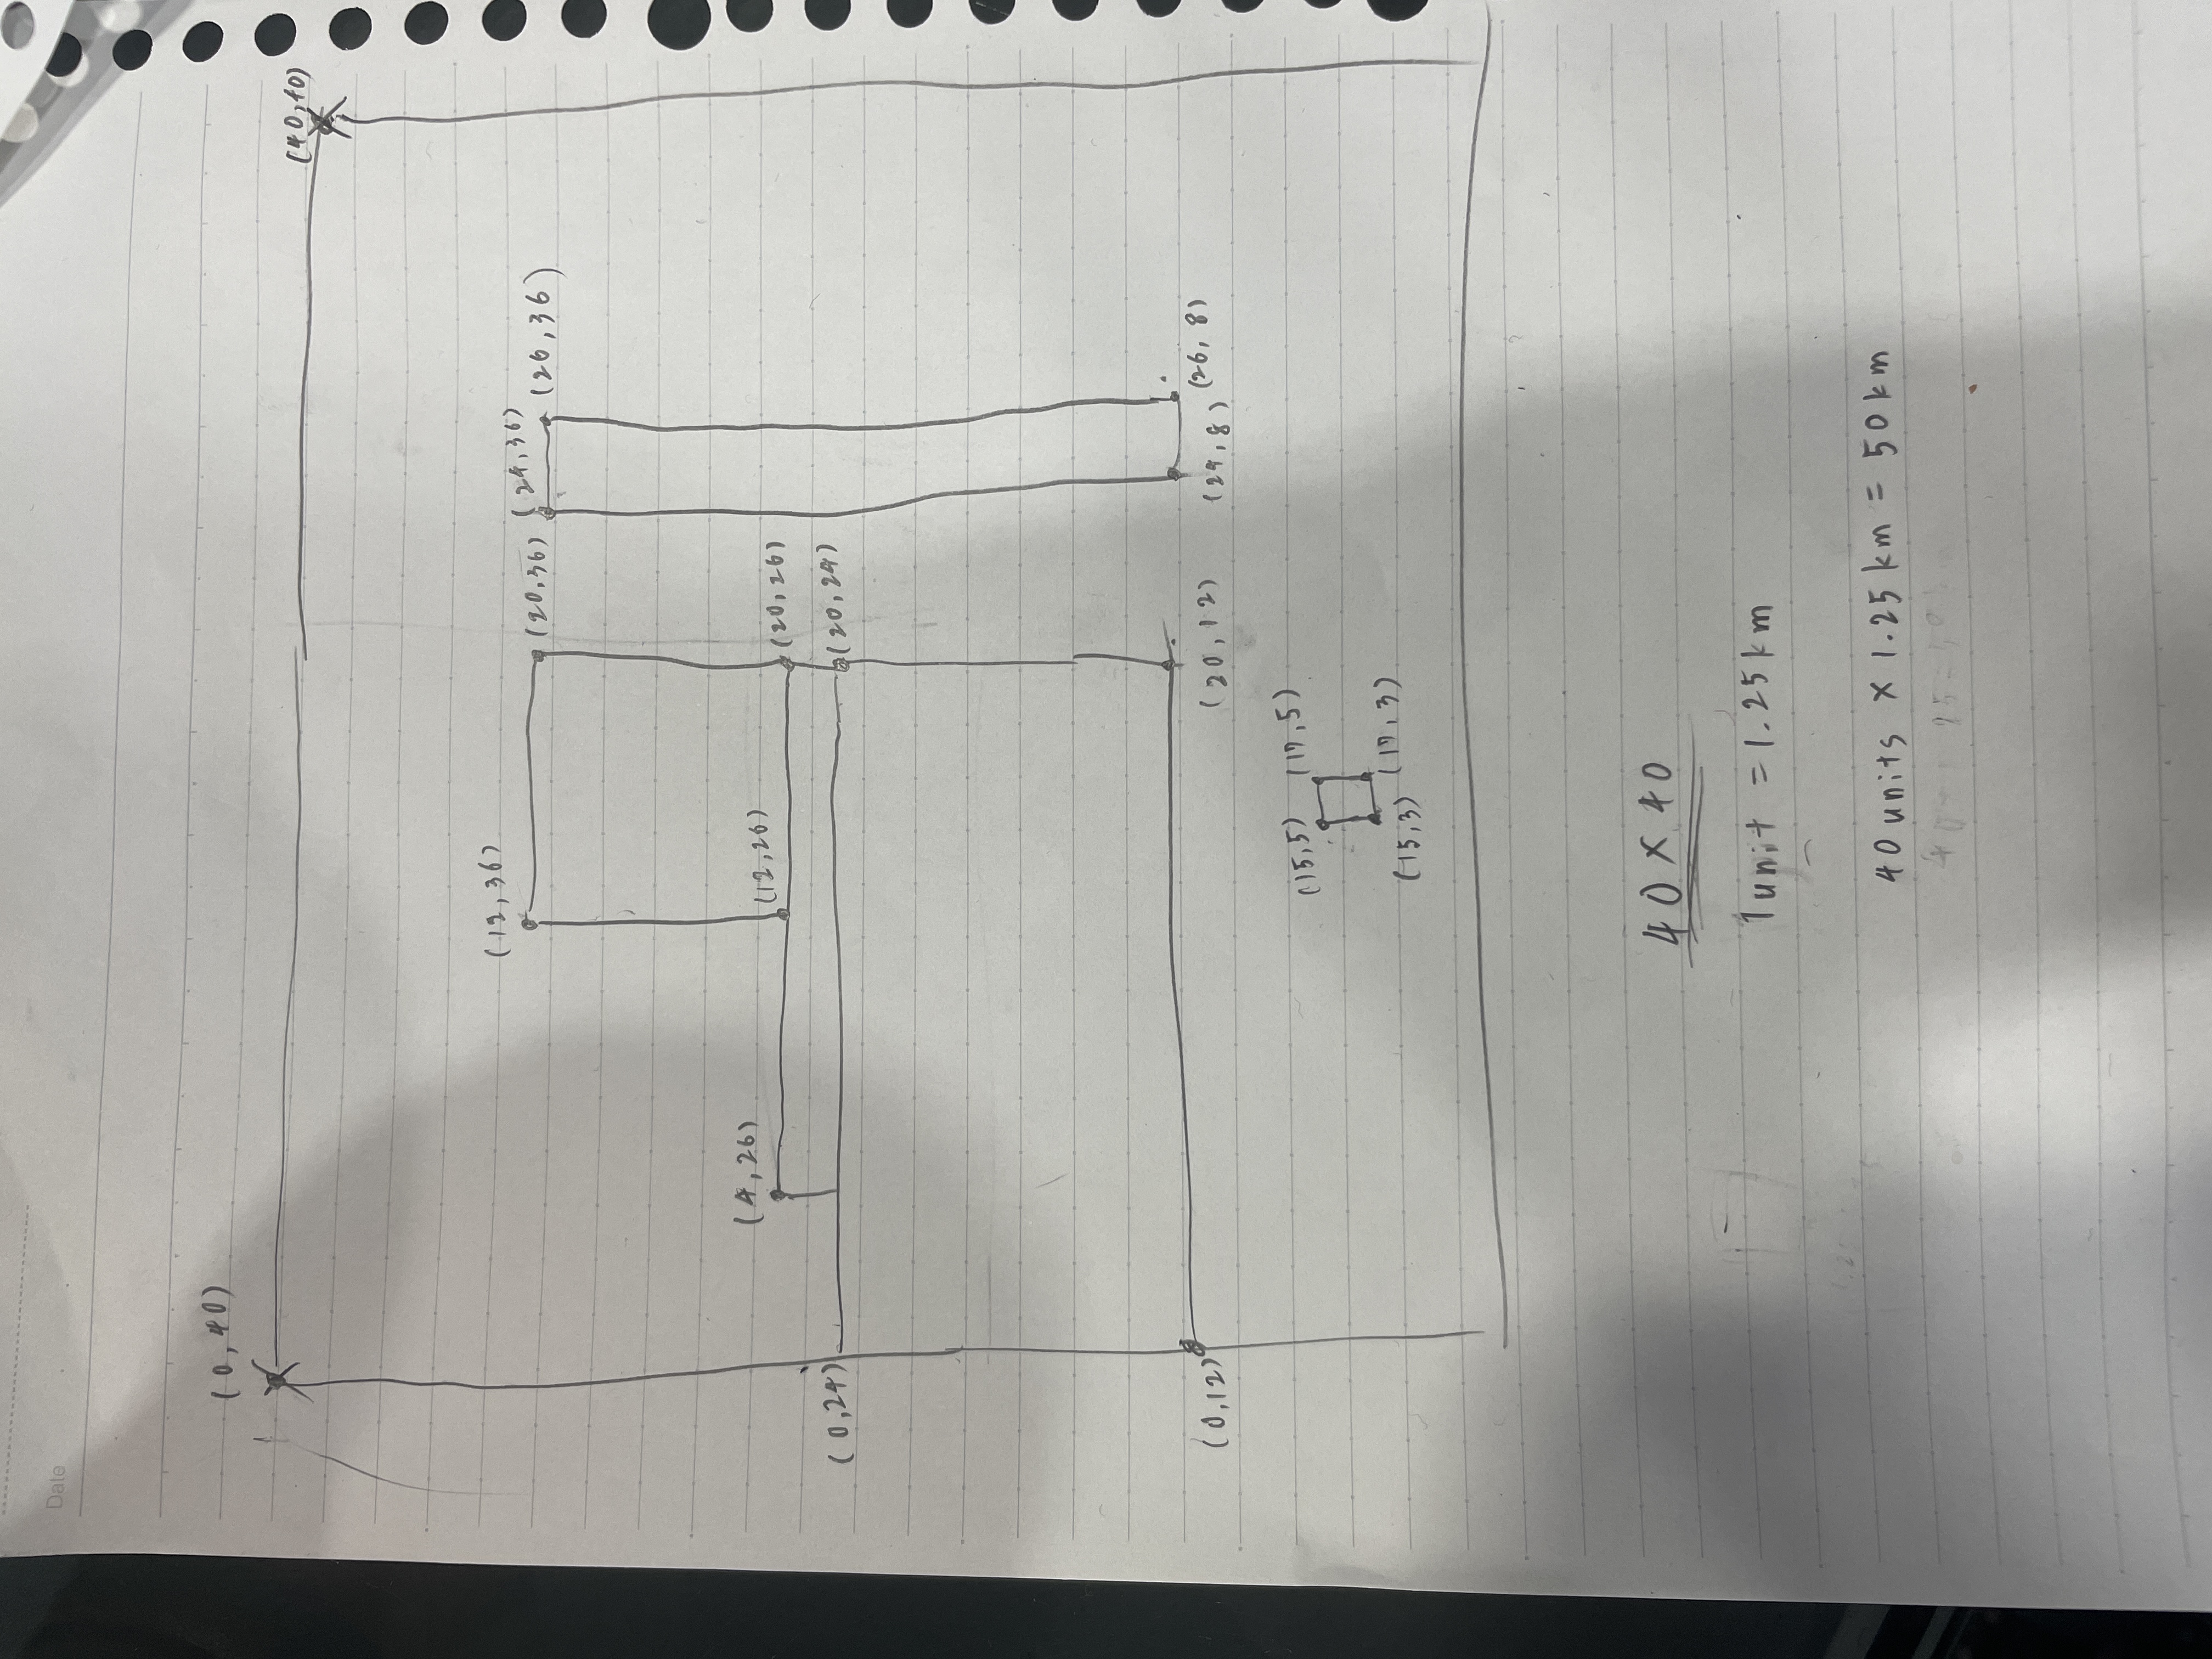 Date
(0,40)
(40,40)
(12,36)
(20,36)
(24,36)
(26,36)
(4,26)
(12,26)
(20,26)
(0,24)
(20,24)
(0,12)
(20,12)
(24,8)
(26,8)
(15,5)
(17,5)
(15,3)
(17,3)
40 x 40
1 unit = 1.25 km
40 units x 1.25 km = 50 km